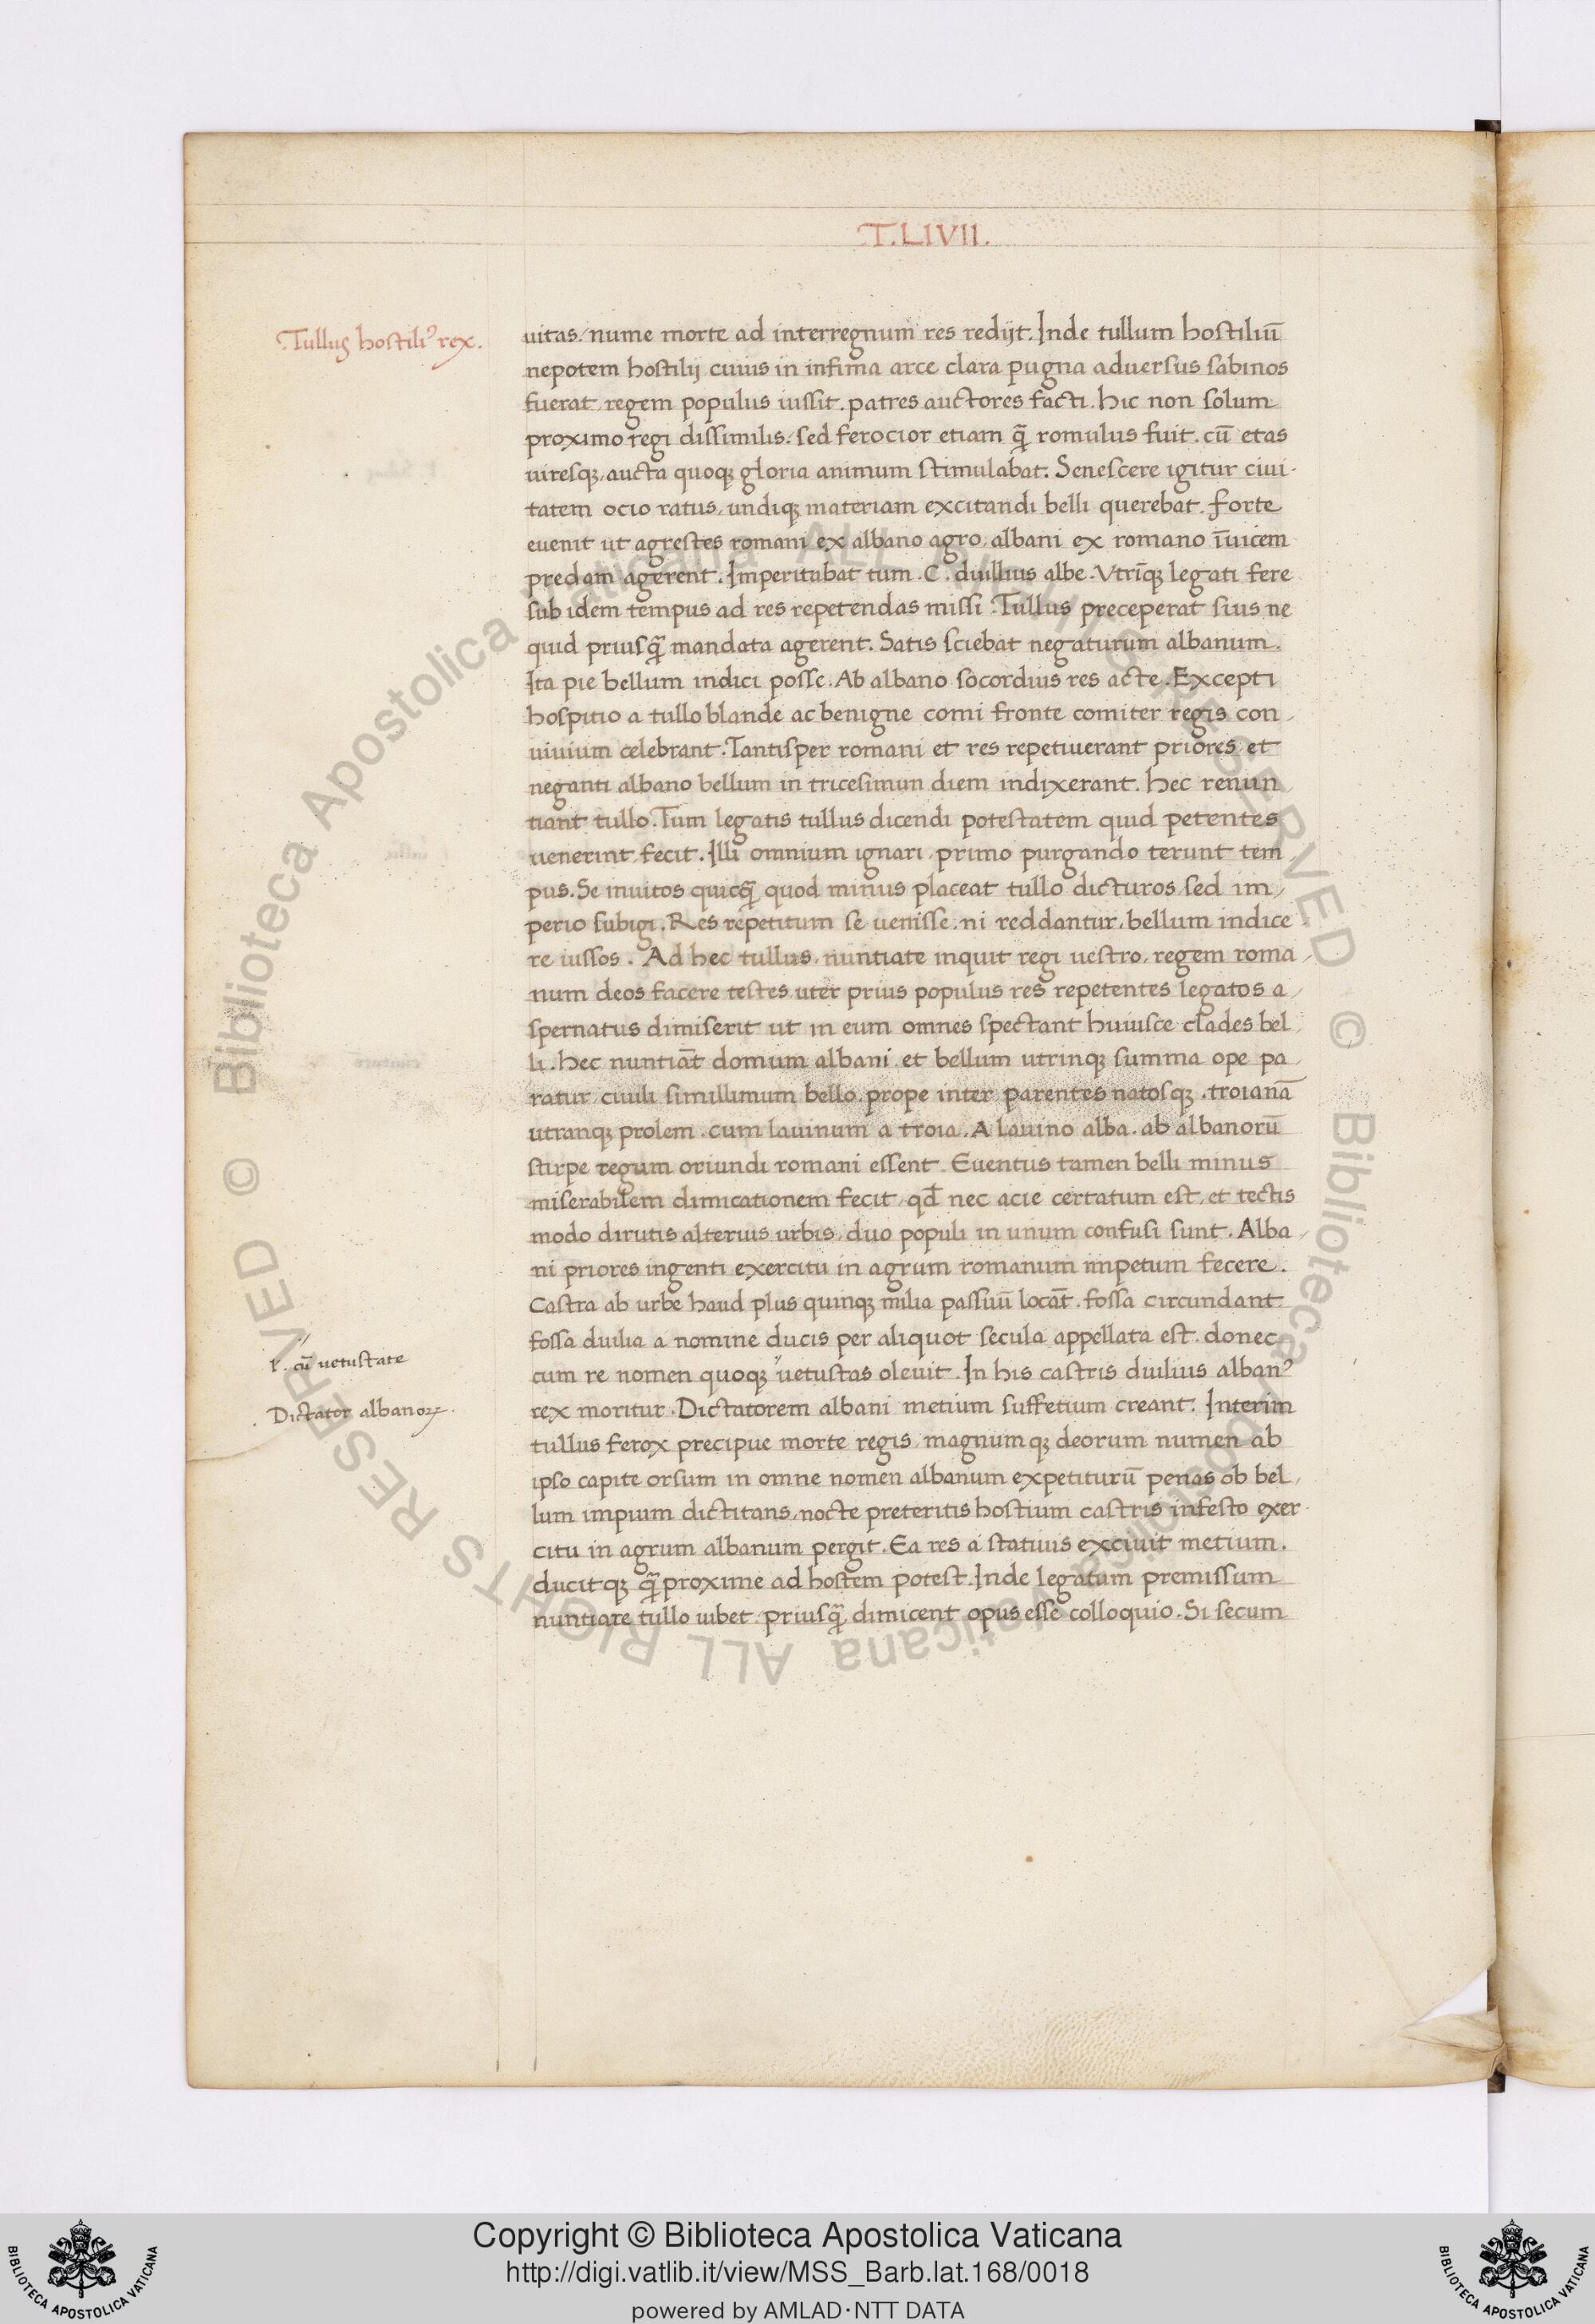 T. LIVII.
Tullus hostiliꝰ rex.
uitas. nume morte ad interregnum res redijt. Inde tullum hostiliū
nepotem hostilij cuius in infima arce clara pugna aduersus sabinos
fuerat, regem populus iussit. patres auctores facti. hic non solum
proximo regi dissimilis. sed ferocior etiam q̄ romulus fuit. cū etas
uiresqꝫ, aucta quoqꝫ gloria animum stimulabat. Senescere igitur ciui-
tatem ocio ratus, undiqꝫ materiam excitandi belli querebat. forte
euenit ut agrestes romani ex albano agro, albani ex romano īuicem
predam agerent. Imperitabat tum .C. duillius albe. Vtrīqꝫ legati fere
sub idem tempus ad res repetendas missi. Tullus preceperat suis ne
quid priusq̄ mandata agerent. Satis sciebat negaturum albanum.
Ita pie bellum indici posse. Ab albano socordius res acte. Excepti
hospitio a tullo blande ac benigne comi fronte comiter regis con-
uiuium celebrant. Tantisper romani et res repetiuerant priores et
neganti albano bellum in tricesimum diem indixerant. hec renun
tiant tullo. Tum legatis tullus dicendi potestatem quid petentes
uenerint fecit. Illi omnium ignari, primo purgando terunt tem
pus. Se inuitos quicq̄ quod minus placeat tullo dicturos, sed im-
perio subigi. Res repetitum se uenisse. ni reddantur, bellum indice
re iussos. Ad hec tullus, nuntiate inquit regi uestro, regem roma-
num deos facere testes uter prius populus res repetentes legatos a-
spernatus dimiserit ut in eum omnes spectant huiusce clades bel-
li. hec nuntiāt domum albani. et bellum utrinqꝫ summa ope pa-
ratur, ciuili simillimum bello. prope inter parentes natosqꝫ. troianā
utranqꝫ prolem. cum lauinum a troia. A lauino alba. ab albanorū
stirpe regum oriundi romani essent. Euentus tamen belli minus
miserabilem dimicationem fecit, qd̄ nec acie certatum est, et tectis
modo dirutis alterius urbis, duo populi in unum confusi sunt. Alba-
ni priores ingenti exercitu in agrum romanum impetum fecere.
Castra ab urbe haud plus quinqꝫ milia passuū locāt. fossa circundant
fossa duilia a nomine ducis per aliquot secula appellata est. donec
l. cū uetustate
cum re nomen quoqꝫ "uetustas oleuit. In his castris duilius albanꝰ
Dictator albanoꝝ.
rex moritur. Dictatorem albani metium suffetium creant. Interim
tullus ferox precipue morte regis, magnumqꝫ deorum numen ab
ipso capite orsum in omne nomen albanum expetiturū penas ob bel-
lum impium dictitans, nocte preteritis hostium castris infesto exer-
citu in agrum albanum pergit. Ea res a statiuis exciuit metium.
ducitqꝫ q̄ proxime ad hostem potest. Inde legatum premissum
nuntiare tullo iubet. priusq̄ dimicent opus esse colloquio. Si secum
© Biblioteca Apostolica Vaticana ALL RIGHTS RESERVED © Biblioteca Apostolica Vaticana ALL RIGHTS RESERVED
BIBLIOTECA APOSTOLICA VATICANA
Copyright © Biblioteca Apostolica Vaticana
http://digi.vatlib.it/view/MSS_Barb.lat.168/0018
powered by AMLAD·NTT DATA
BIBLIOTECA APOSTOLICA VATICANA